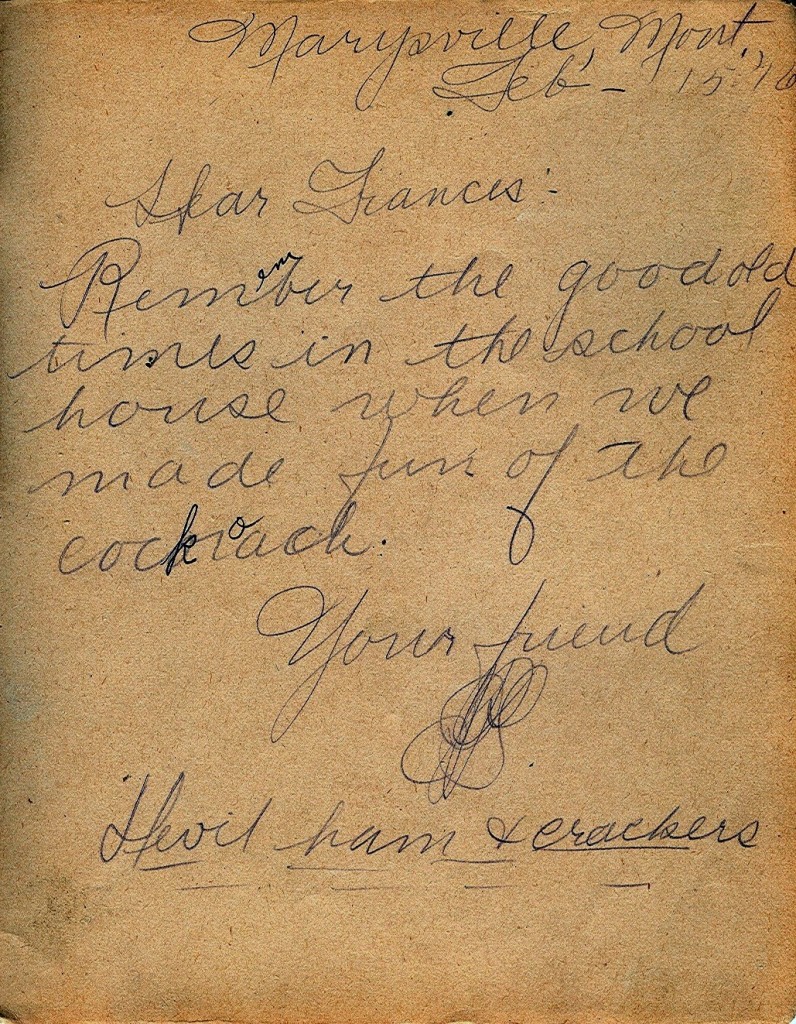 Marysville, Mont.
Feb - 15
Dear Frances:-
Remember the good old
times in the school
house when we
made fun of the
cockroach.
Your friend
Devil ham & crackers